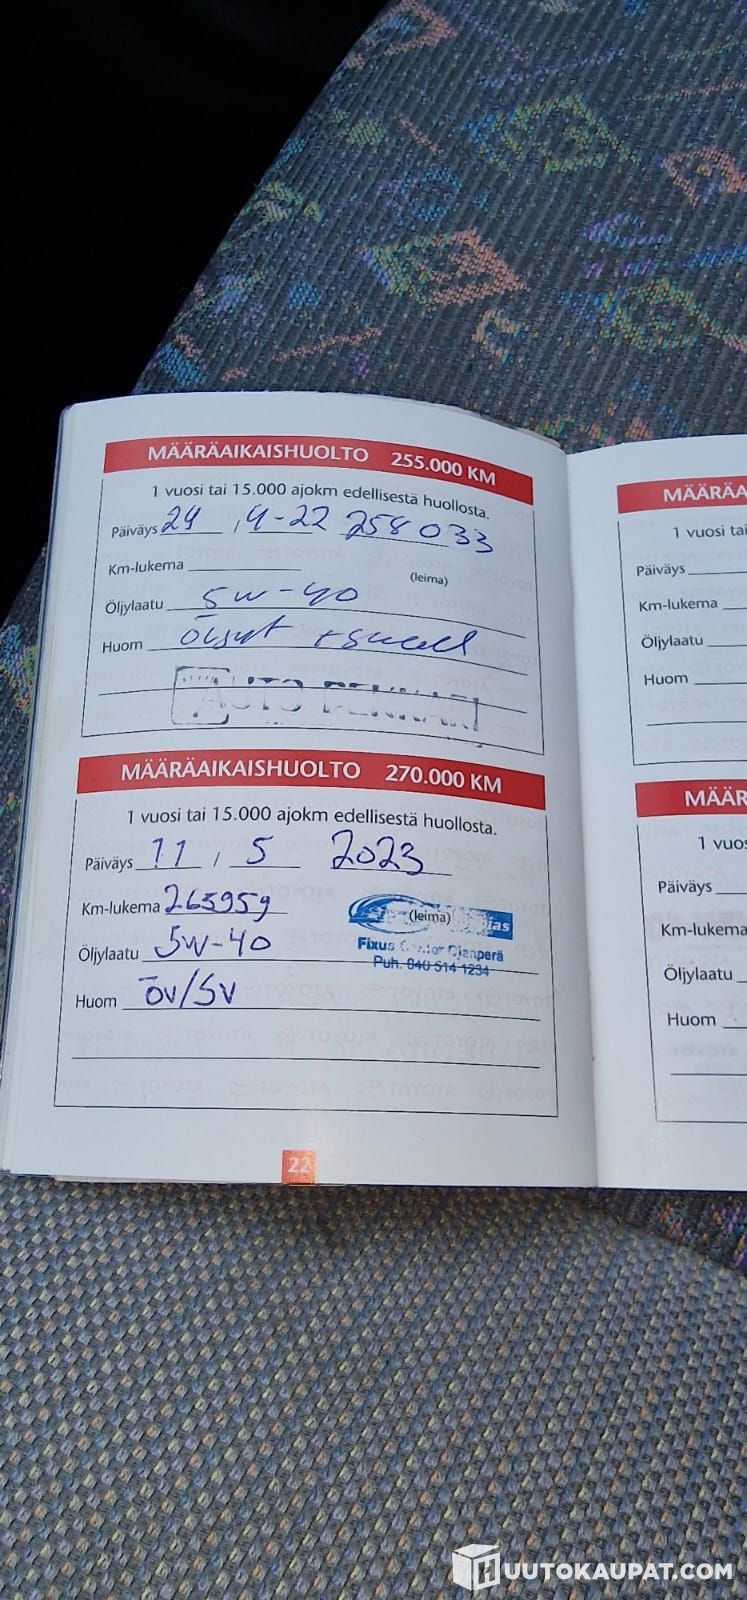 MÄÄRÄAIKAISHUOLTO 255.000 KM
1 vuosi tai 15.000 ajokm edellisestä huollosta.
Päiväys 24 , 4-22 258033
Km-lukema
(leima)
Öljylaatu 5W-40
Huom Öljyt + suod
AUTO
MÄÄRÄAIKAISHUOLTO 270.000 KM
1 vuosi tai 15.000 ajokm edellisestä huollosta.
Päiväys 11 / 5 2023
Km-lukema 263959
(leima)
Öljylaatu 5W-40
Fixus Ojanperä
Puh. 040 514 1234
Huom ÖV/SV
22
MÄÄRÄA
1 vuosi tai
Päiväys
Km-lukema
Öljylaatu
Huom
MÄÄR
1 vuos
Päiväys
Km-lukema
Öljylaatu
Huom
HUUTOKAUPAT.COM